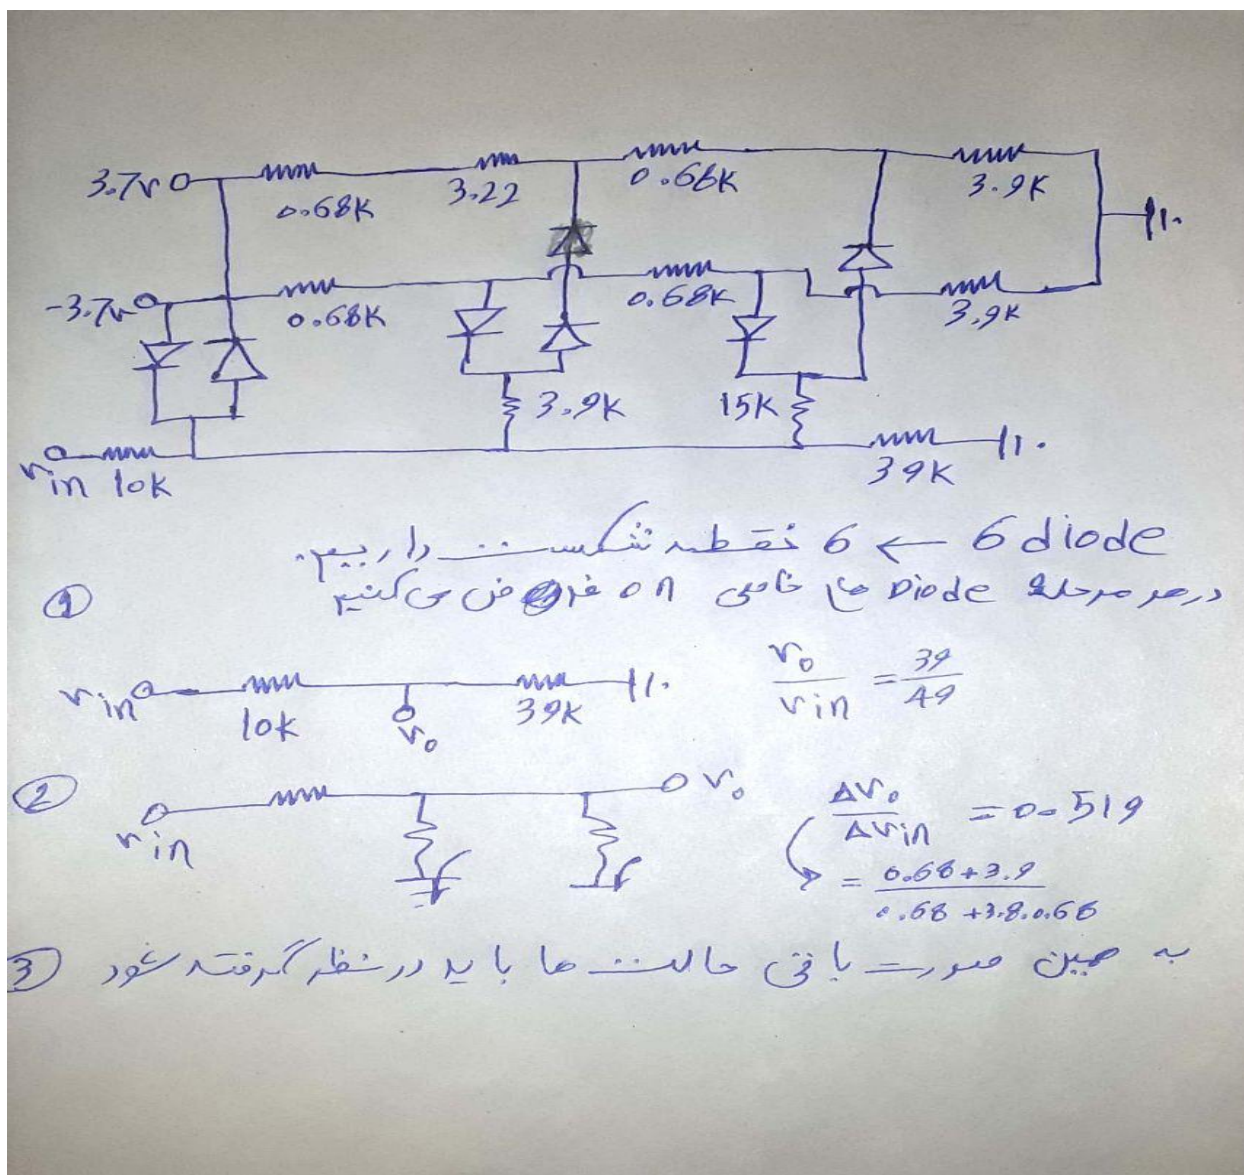 3.7v
0.68K
3.22
0.68K
3.9K
-3.7v
0.68K
0.68K
3.9K
3.9K
15K
Vin 10K
39K
6 diode ← 6 نقطه شکست داریم.
① در هر مرحله Diode های خاصی on فرض می کنیم
Vin
10K
Vo
39K
Vo/Vin = 39/49
②
Vin
Vo
ΔVo/ΔVin = 0.519
= 0.68+3.9 / 0.68+3.8.0.68
③ به همین صورت باقی حالت ها باید در نظر گرفته شود